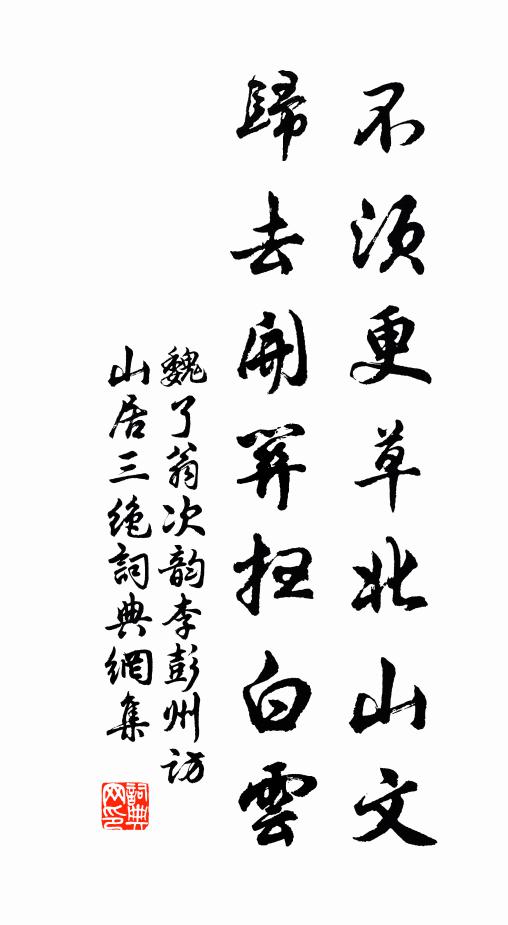 不須更草北山文
歸去開關扫白雲
魏了翁次韵李彭州訪
山居三绝詞典網集
詞典
网印